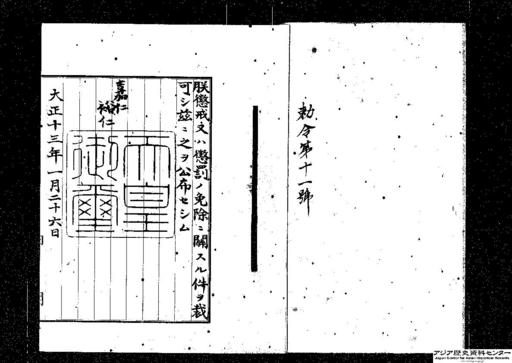 勅令第十一號
朕懲戒又ハ懲罰ノ免除ニ關スル件ヲ裁
可シ茲ニ之ヲ公布セシム
嘉仁
裕仁
天皇
御璽
大正十三年一月二十六日
アジア歴史資料センター
Japan Center for Asian Historical Records